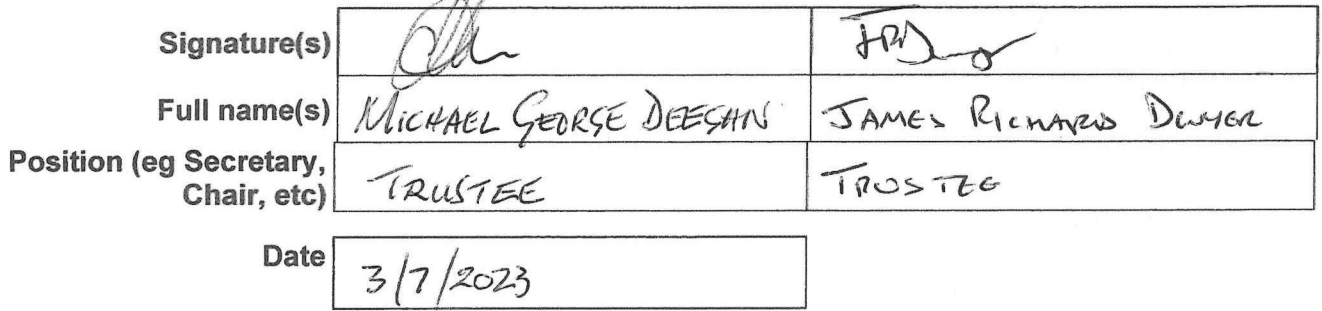 Signature(s)
Full name(s) MICHAEL GEORGE DEEGAN JAMES RICHARD DWYER
Position (eg Secretary,
Chair, etc) TRUSTEE TRUSTEE
Date 3/7/2023